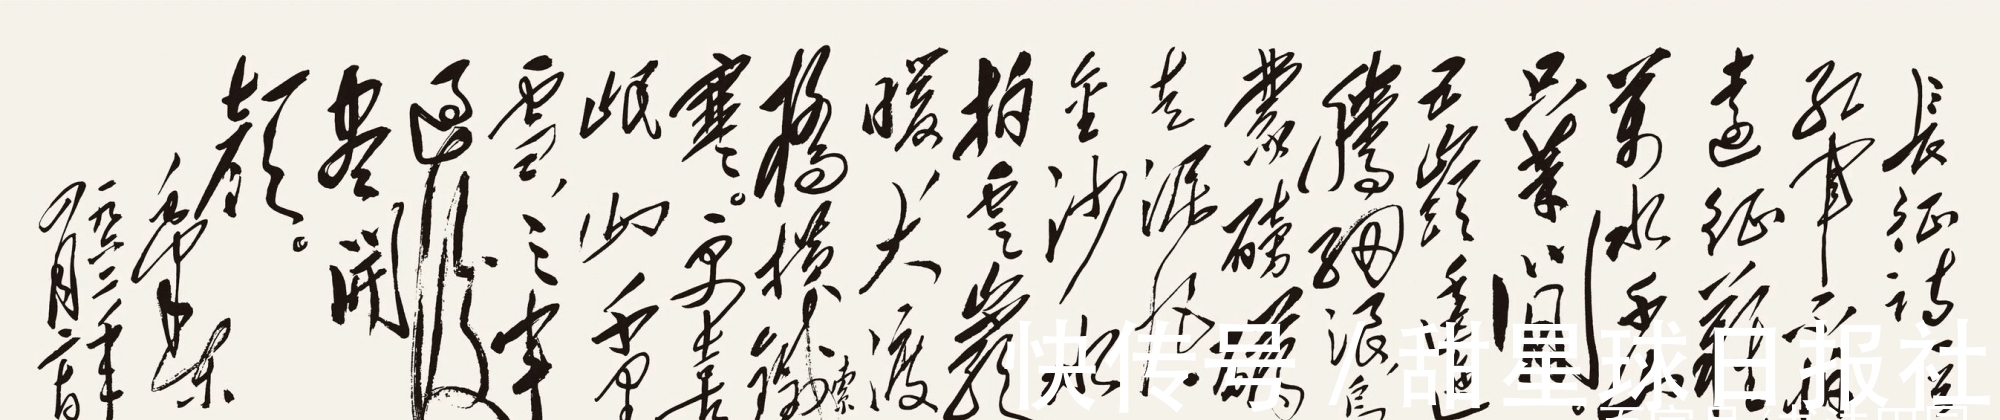 長征詩一首
紅軍不怕
遠征難
萬水千山
只等閒。
五嶺逶迤
騰細浪烏
蒙磅礴
走泥丸
金沙水
拍雲崖
暖大渡
橋橫鐵索
寒。更喜
岷山千里
雪，三軍
過後
盡開
顏。
毛澤東
一九六二年
四月二十日
快传号 / 甜星球日报社